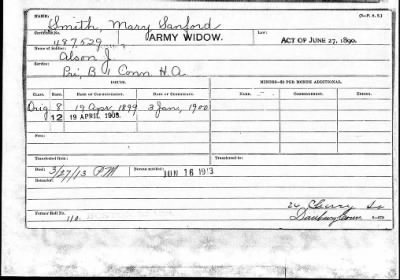 NAME: (3-P. A. S.)
Smith, Mary Sanford
Certificate No. ARMY WIDOW. Law: ACT OF JUNE 27, 1890.
487,529
Name of Soldier:
Alson J.
Service:
Pri, B 1 Conn H.A.
ISSUES. MINORS—$2 PER MONTH ADDITIONAL.
CLASS. RATE. DATE OF COMMENCEMENT. DATE OF CERTIFICATE. NAME. COMMENCEMENT. ENDING.
Orig 8 19 Apr, 1899 3 Jany, 1900
12 19 APRIL 1908.
Transferred from Transferred to
Died: 3/27/13 P.M. JUN 16 1913
Remarks:
Former Roll No. Danbury Conn